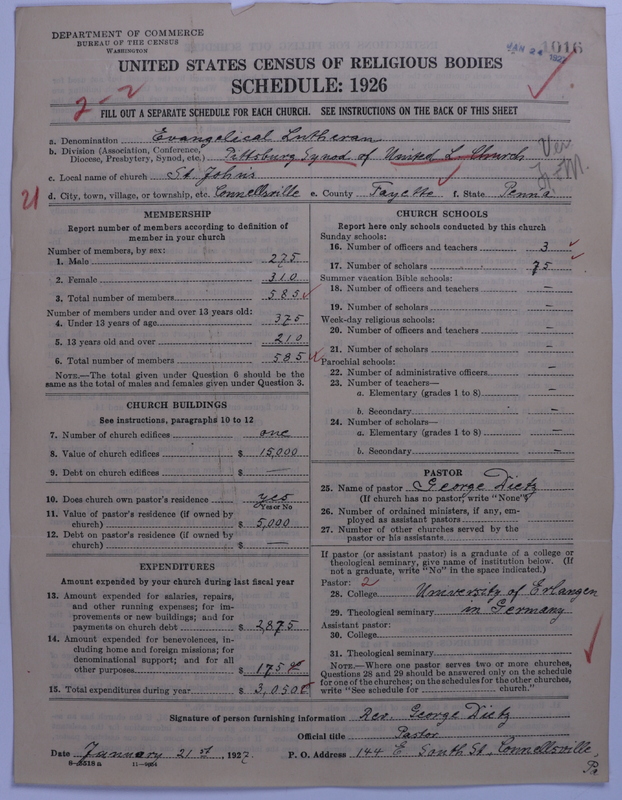 DEPARTMENT OF COMMERCE
BUREAU OF THE CENSUS
WASHINGTON
JAN 24 1927
1016
UNITED STATES CENSUS OF RELIGIOUS BODIES
SCHEDULE: 1926
2-2
FILL OUT A SEPARATE SCHEDULE FOR EACH CHURCH. SEE INSTRUCTIONS ON THE BACK OF THIS SHEET
a. Denomination Evangelical Lutheran
b. Division (Association, Conference, Diocese, Presbytery, Synod, etc.) Pittsburg Synod of United L. Church
Ver
c. Local name of church St. Johns
21
d. City, town, village, or township, etc. Connellsville e. County Fayette f. State Penna
MEMBERSHIP
Report number of members according to definition of
member in your church
Number of members, by sex:
1. Male 275
2. Female 310
3. Total number of members 585
Number of members under and over 13 years old:
4. Under 13 years of age 375
5. 13 years old and over 210
6. Total number of members 585
NOTE.—The total given under Question 6 should be the
same as the total of males and females given under Question 3.
CHURCH BUILDINGS
See instructions, paragraphs 10 to 12
7. Number of church edifices one
8. Value of church edifices $ 15,000
9. Debt on church edifices $ —
10. Does church own pastor's residence yes
Yes or No
11. Value of pastor's residence (if owned by
church) $ 5,000
12. Debt on pastor's residence (if owned by
church) $ —
EXPENDITURES
Amount expended by your church during last fiscal year
13. Amount expended for salaries, repairs,
and other running expenses; for im-
provements or new buildings; and for
payments on church debt $ 2875
14. Amount expended for benevolences, in-
cluding home and foreign missions; for
denominational support; and for all
other purposes $ 175
15. Total expenditures during year $ 3,050
CHURCH SCHOOLS
Report here only schools conducted by this church
Sunday schools:
16. Number of officers and teachers 3
17. Number of scholars 75
Summer vacation Bible schools:
18. Number of officers and teachers —
19. Number of scholars —
Week-day religious schools:
20. Number of officers and teachers —
21. Number of scholars —
Parochial schools:
22. Number of administrative officers —
23. Number of teachers—
a. Elementary (grades 1 to 8) —
b. Secondary —
24. Number of scholars—
a. Elementary (grades 1 to 8) —
b. Secondary —
PASTOR
25. Name of pastor George Dietz
(If church has no pastor, write "None")
26. Number of ordained ministers, if any, em-
ployed as assistant pastors
27. Number of other churches served by the
pastor or his assistants
If pastor (or assistant pastor) is a graduate of a college or
theological seminary, give name of institution below. (If
not a graduate, write "No" in the space indicated.)
Pastor: 2
28. College University of Erlangen
29. Theological seminary in Germany
Assistant pastor:
30. College
31. Theological seminary
NOTE.—Where one pastor serves two or more churches,
Questions 28 and 29 should be answered only on the schedule
for one of the churches; on the schedules for the other churches,
write "See schedule for church."
Signature of person furnishing information Rev. George Dietz
Official title Pastor
Date January 21st, 1927 P. O. Address 144 E South St. Connellsville
Pa
8—5518 a 11—9064